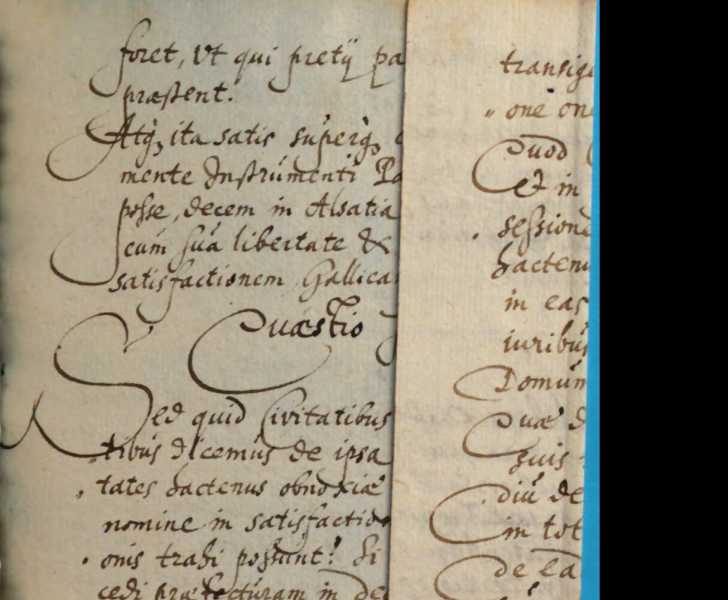 foret, Vt qui pretÿ pa
præstent.
Atq, ita satis superq,
mente Instrumenti Pa
posse, decem in Alsatia
cum sua libertate &
satisfactionem Gallica
Quæstio
Sed quid Civitatibus
tibus dicemus de ipsa
tates hactenus obnoxiæ
nomine in satisfactio
onis trahi possunt? Si
cedi præfecturam in de
transig
one on
Quod
Et in
sessione
hactenu
in eas
iuribus
Domum
Quæ d
suis
diu de
in tot
de ea